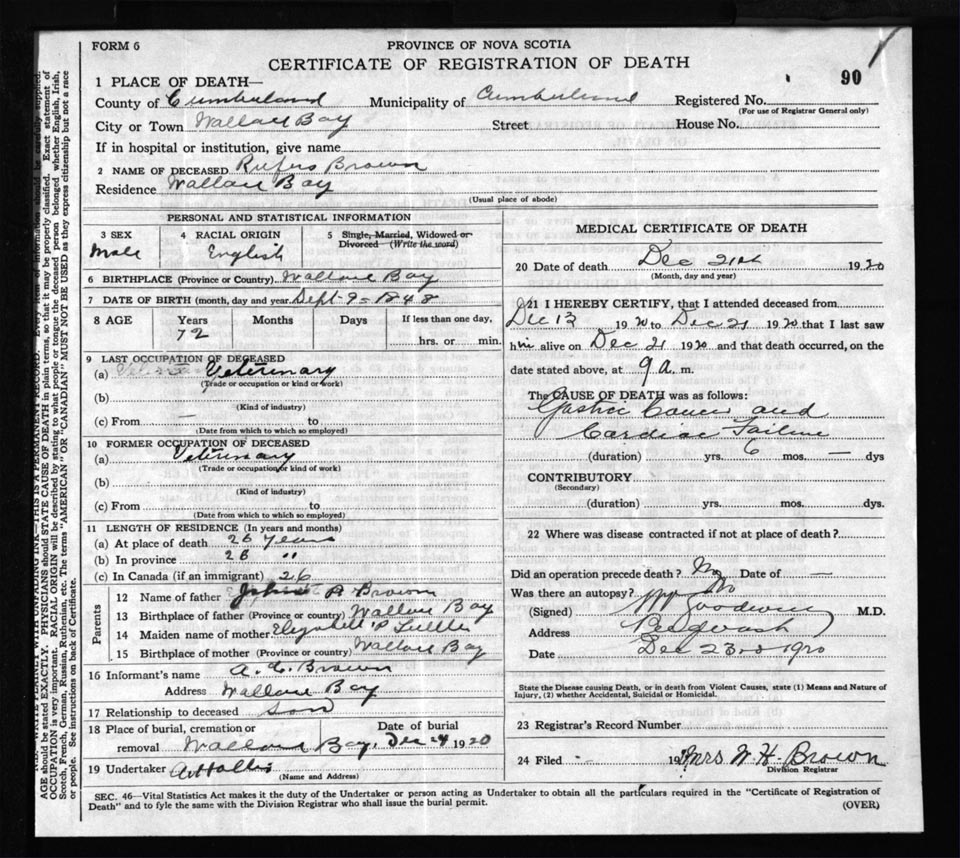 FORM 6
PROVINCE OF NOVA SCOTIA
CERTIFICATE OF REGISTRATION OF DEATH
90
1 PLACE OF DEATH—
County of Cumberland Municipality of Cumberland Registered No.
(For use of Registrar General only)
City or Town Wallace Bay Street House No.
If in hospital or institution, give name
2 NAME OF DECEASED Rufus Brown
Residence Wallace Bay
(Usual place of abode)
PERSONAL AND STATISTICAL INFORMATION
3 SEX 4 RACIAL ORIGIN 5 Single, Married, Widowed or
Divorced (Write the word)
Male English
6 BIRTHPLACE (Province or Country) Wallace Bay
7 DATE OF BIRTH (month, day and year) Sept 9 = 1848
8 AGE Years Months Days If less than one day,
72 hrs. or min.
9 LAST OCCUPATION OF DECEASED
(a) Veterinary
(Trade or occupation or kind of work)
(b)
(Kind of industry)
(c) From — to
(Date from which to which so employed)
10 FORMER OCCUPATION OF DECEASED
(a) Veterinary
(Trade or occupation or kind of work)
(b)
(Kind of industry)
(c) From to
(Date from which to which so employed)
11 LENGTH OF RESIDENCE (In years and months)
(a) At place of death 26 years
(b) In province 26 "
(c) In Canada (if an immigrant) 26
Parents
12 Name of father Brown
13 Birthplace of father (Province or Country) Wallace Bay
14 Maiden name of mother
15 Birthplace of mother (Province or country) Wallace Bay
16 Informant's name A. C. Brown
Address Wallace Bay
17 Relationship to deceased Son
18 Place of burial, cremation or Date of burial
removal Wallace Bay, Dec 24 1920
19 Undertaker
(Name and Address)
MEDICAL CERTIFICATE OF DEATH
20 Date of death Dec 21st 1920
(Month, day and year)
21 I HEREBY CERTIFY, that I attended deceased from
Dec 13 1920 to Dec 21 1920 that I last saw
him alive on Dec 21 1920 and that death occurred, on the
date stated above, at 9 a. m.
The CAUSE OF DEATH was as follows:
Gastric Cancer and
Cardiac Failure
(duration) yrs. 6 mos. — dys
CONTRIBUTORY
(Secondary)
(duration) yrs. mos. dys.
22 Where was disease contracted if not at place of death?
Did an operation precede death? No Date of —
Was there an autopsy? No
(Signed) Goodwin M.D.
Address Pugwash
Date Dec 23rd 1920
State the Disease causing Death, or in death from Violent Causes, state (1) Means and Nature of
Injury, (2) whether Accidental, Suicidal or Homicidal.
23 Registrar's Record Number
24 Filed 19 Mrs W. H. Brown
Division Registrar
SEC. 46—Vital Statistics Act makes it the duty of the Undertaker or person acting as Undertaker to obtain all the particulars required in the "Certificate of Registration of
Death" and to fyle the same with the Division Registrar who shall issue the burial permit.
(OVER)
WRITE PLAINLY WITH UNFADING INK—THIS IS A PERMANENT RECORD. Every item of information should be carefully supplied.
AGE should be stated EXACTLY. PHYSICIANS should STATE CAUSE OF DEATH in plain terms, so that it may be properly classified. Exact statement of
OCCUPATION is very important. RACIAL ORIGIN will be described by stating to what people or tongue the deceased person belonged whether English, Irish,
Scotch, French, German, Russian, Ruthenian, etc. The terms "AMERICAN" OR "CANADIAN" MUST NOT BE USED as they express citizenship but not a race
or people. See instructions on back of Certificate.